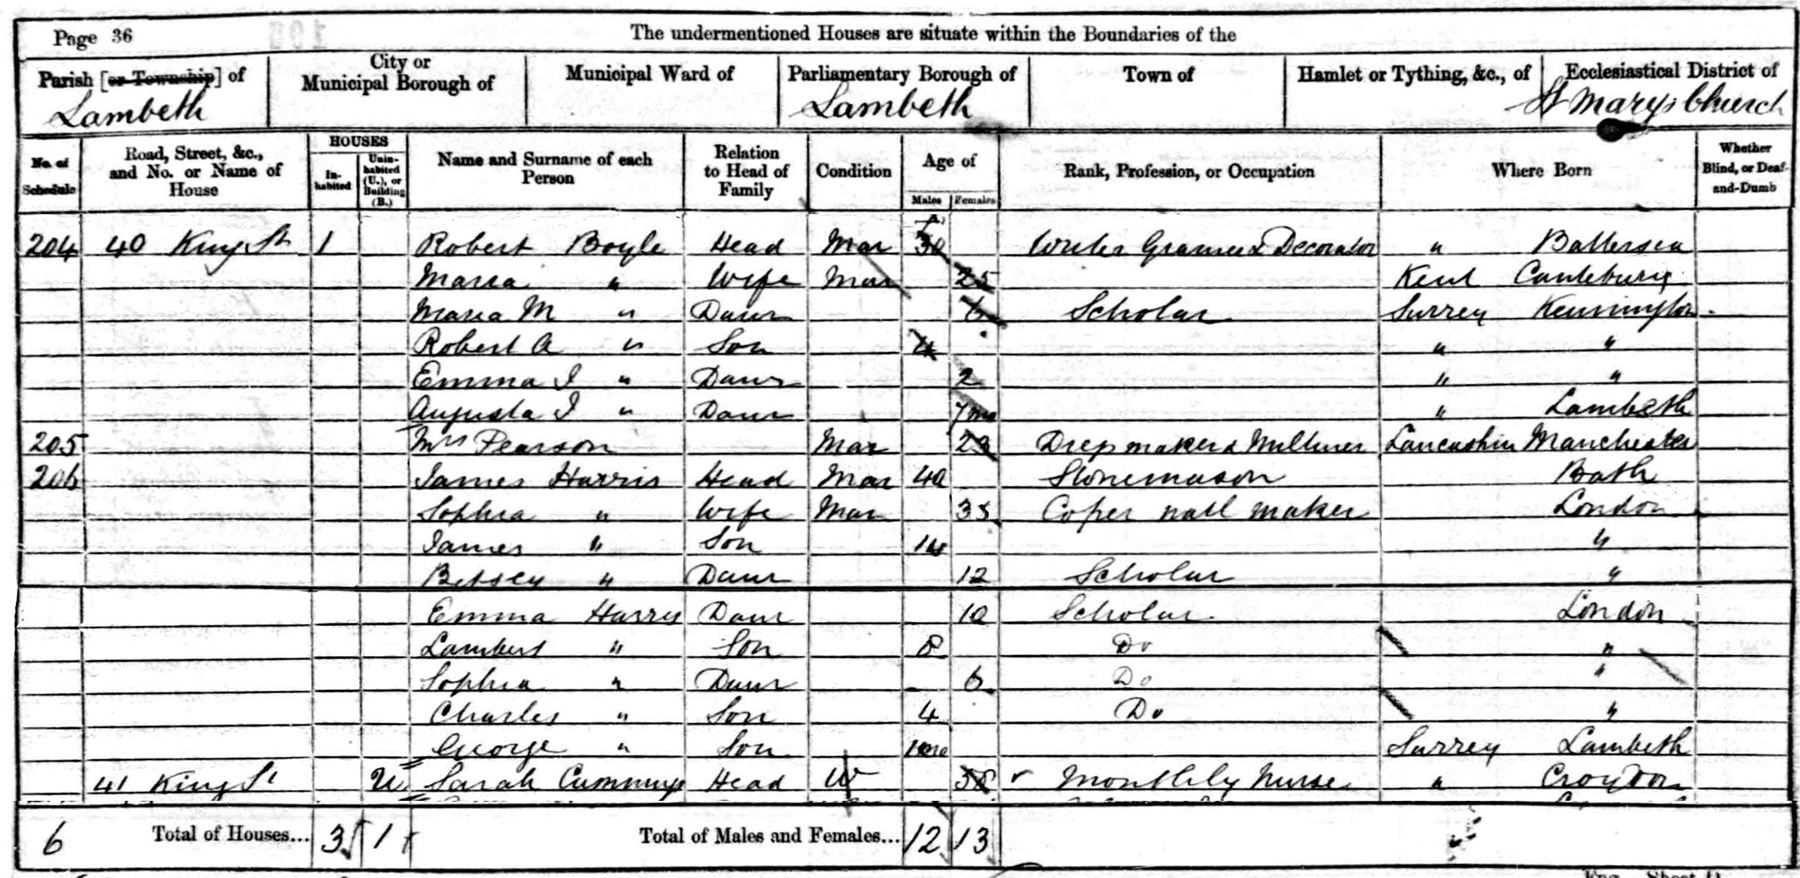 Page 36 The undermentioned Houses are situate within the Boundaries of the
Parish [or Township] of Lambeth
City or Municipal Borough of
Municipal Ward of
Parliamentary Borough of Lambeth
Town of
Hamlet or Tything, &c., of
Ecclesiastical District of St Mary's Church
No. of Schedule
Road, Street, &c., and No. or Name of House
HOUSES
In-habited
Unin-habited (U.), or Building (B.)
Name and Surname of each Person
Relation to Head of Family
Condition
Age of
Males Females
Rank, Profession, or Occupation
Where Born
Whether Blind, or Deaf-and-Dumb
204 40 King St 1 Robert Boyle Head Mar 30 Writer Grainer & Decorator " Battersea
Maria " Wife Mar 25 Kent Canteburg
Maria M " Daur 6 Scholar Surrey Kennington
Robert A " Son 4 " "
Emma J " Daur 2 " "
Augusta J " Daur 7mo " Lambeth
205 Mrs Pearson Mar 23 Dressmaker & Milliner Lancashire Manchester
206 James Harris Head Mar 40 Stonemason Bath
Sophia " Wife Mar 35 Coper nail maker London
James " Son 14 "
Betsey " Daur 12 Scholar "
Emma Harris Daur 10 Scholar London
Lambert " Son 8 Do "
Sophia " Daur 6 Do "
Charles " Son 4 Do "
George " Son 1mo Surrey Lambeth
41 King St U Sarah Cummings Head W 38 Monthly Nurse " Croydon
6 Total of Houses... 3 1 Total of Males and Females... 12 13